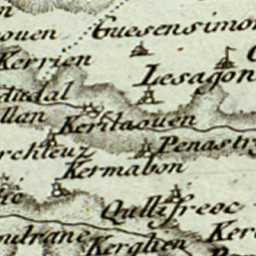 Guesensimon
ouen
Kerrien
Lesagon
dudal
llan
Kerstaouen
Penastr
rchleuz
Kermabon
Quillifreoc
Ker
oudrane
Kerglien